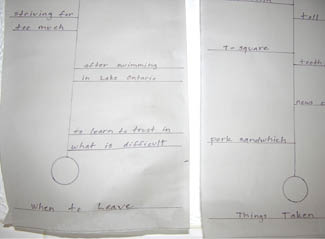 striving for
too much
after swimming
in Lake Ontario
to learn to trust in
what is difficult
When to Leave
toll
T-square
tooth
news
pork sandwhich
Things Taken